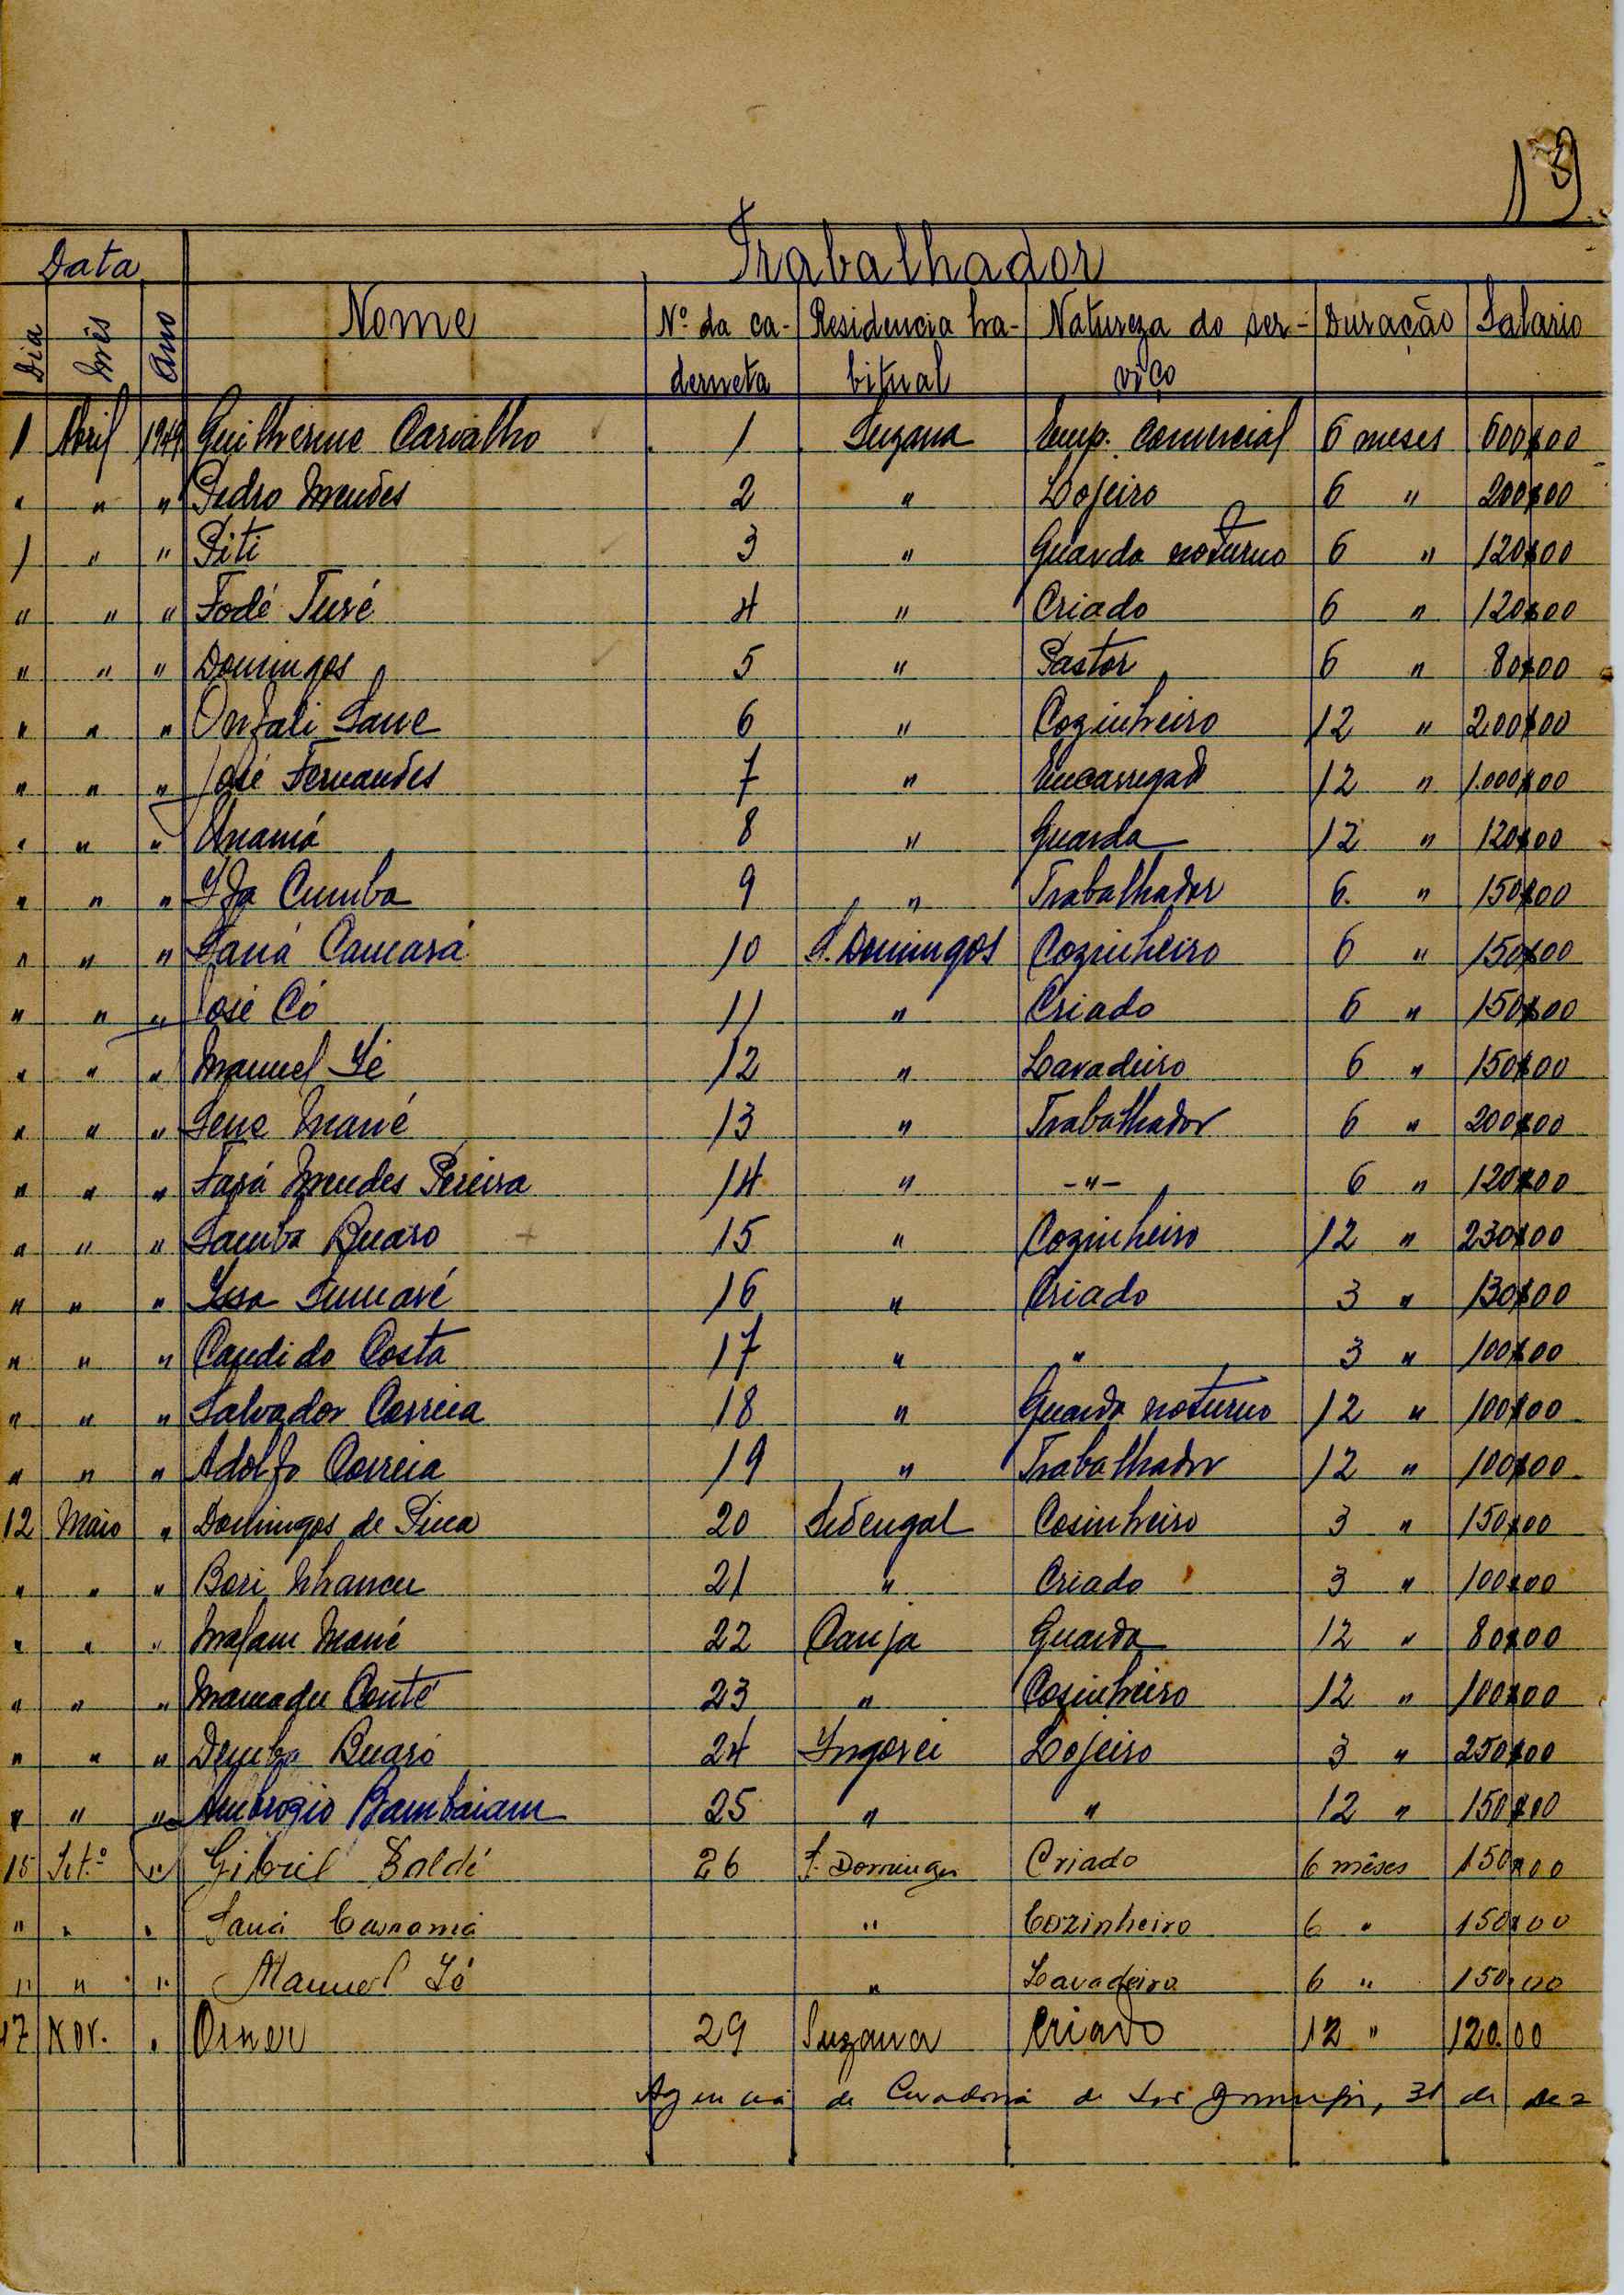 19
Data Trabalhador
Dia Mês Ano Nome Nº da ca- Residencia ha- Natureza do ser- Duração Salario
derneta bitual viço
1 Abril 1944 Guilherme Carvalho 1 Suzana Emp. Comercial 6 meses 600$00
" " " Pedro Mendes 2 " Lojeiro 6 " 200$00
1 " " Piti 3 " Guarda noturno 6 " 120$00
" " " Fodé Turé 4 " Criado 6 " 120$00
" " " Domingos 5 " Pastor 6 " 80$00
" " " Onfali Sane 6 " Cozinheiro 12 " 200$00
" " " José Fernandes 7 " Encarregado 12 " 1.000$00
" " " Anamá 8 " Guarda 12 " 120$00
" " " Cumba 9 " Trabalhador 6 " 150$00
" " " Saná Camará 10 S. Domingos Cozinheiro 6 " 150$00
" " " José Có 11 " Criado 6 " 150$00
" " " Manuel Sé 12 " Lavadeiro 6 " 150$00
" " " Sene Mané 13 " Trabalhador 6 " 200$00
" " " Fará Mendes Pereira 14 " -"- 6 " 120$00
" " " Samba Buaro 15 " Cozinheiro 12 " 230$00
" " " Issa Sumaré 16 " Criado 3 " 130$00
" " " Candido Costa 17 " " 3 " 100$00
" " " Salvador Correia 18 " Guarda noturno 12 " 100$00
" " " Adolfo Correia 19 " Trabalhador 12 " 100$00
12 Maio " Domingos de Pina 20 Sedengal Cosinheiro 3 " 150$00
" " " Bori Nhancu 21 " Criado 3 " 100$00
" " " Malam Mané 22 Canja Guarda 12 " 80$00
" " " Mamadu Conté 23 " Cosinheiro 12 " 100$00
" " " Demba Buaró 24 Ingorei Lojeiro 3 " 250$00
" " " Ambrozio Bambaiam 25 " " 12 " 150$00
15 Set.º " Gibril Baldé 26 S. Domingos Criado 6 mêses 150$00
" " " Saná " Cozinheiro 6 " 150$00
" " " Manuel Sé " Lavadeiro 6 " 150$00
17 Nov. " 29 Suzana Criado 12 " 120.00
Agencia da Curadoria de São Domingos, 31 de Dez